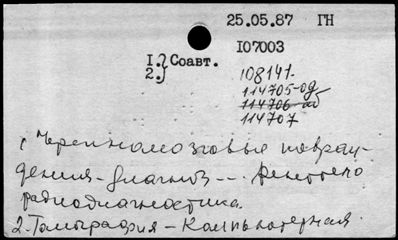 25.05.87 ГН
107003
1.} Соавт.
2.}
108141
114705-об
114706-об
114707
1. Черепномозговые повреж-
дения - диагноз -- . Рентгено
радиодиагностика.
2. Томография - Компьютерная